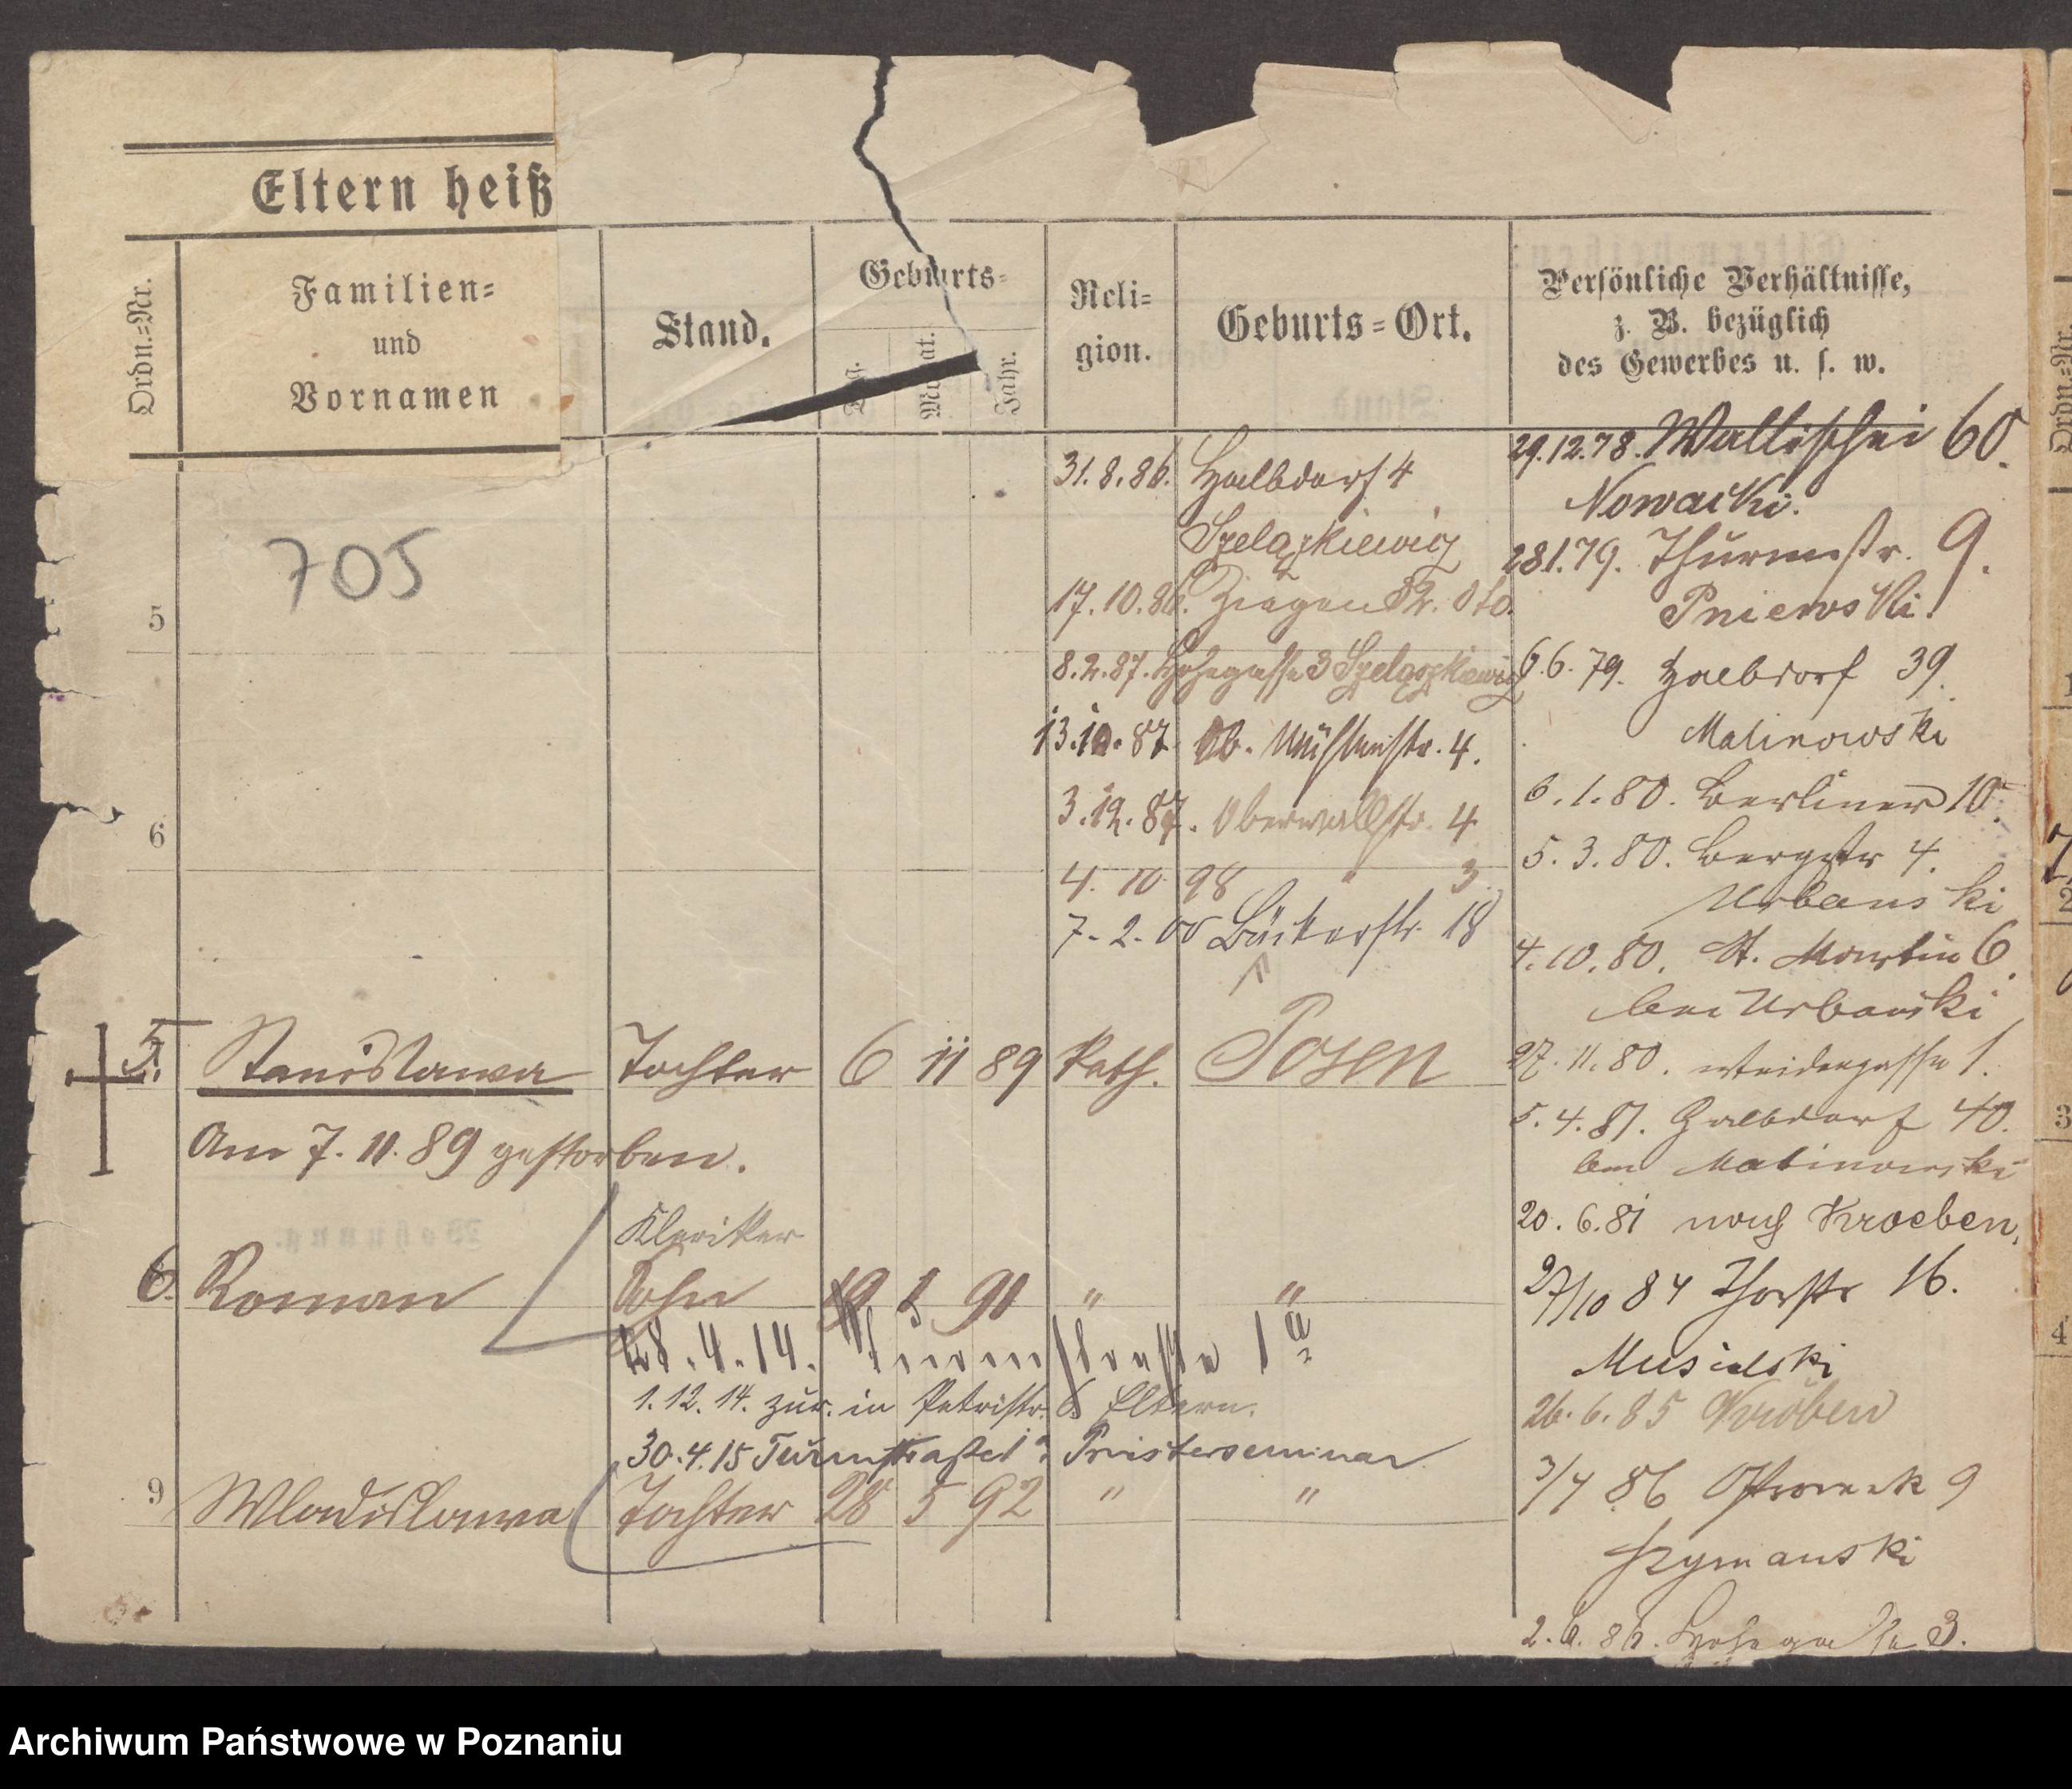 Eltern heiß
Ordn.=Nr.
Familien=
und
Vornamen
Stand.
Geburts=
Tag.
Monat.
Jahr.
Reli=
gion.
Geburts=Ort.
Persönliche Verhältnisse,
z. B. bezüglich
des Gewerbes u. s. w.
705
5
6
31.8.86. Halbdorf 4
Szelązkiewicz
17.10.86. Ziegenstr.
8.2.87. Hohegasse 3 Szelązkiewicz
13.10.87. Ob. Mühlenstr. 4.
3.12.87. Oberwallstr. 4
4. 10 98 " 3.
7. 2. 00 Bäckerstr. 18
5. Stanislawa Tochter 6 11 89 Kath. Posen
Am 7. 11. 89 gestorben.
Kleriker
6. Roman Sohn 19 1 91 " "
28.4.14. Turmstraße 1a
1.12.14. zur. in Petristr. 6 Eltern.
30.4.15 Turmstraße 1a Priesterseminar
9 Wladislawa Tochter 28 5 92 " "
29.12.78. Wallischei 60.
Nowacki.
28.1.79. Thurmstr. 9.
Pniewski.
6.6.79. Halbdorf 39.
Malinowski
6.1.80. Berliner 10.
5.3.80. Bergstr 4.
Urbanski
4.10.80. St. Martin 6.
bei Urbanski
27.11.80. Weidengasse 1.
5.4.81. Halbdorf 40.
bei Malinowski
20.6.81 nach Kroeben.
27/10 84 Thorstr 16.
Musielski
26.6.85 Kröben
3/4 86 Ostrowek 9
Szymanski
2.6.86. Hohegasse 3.
Archiwum Państwowe w Poznaniu